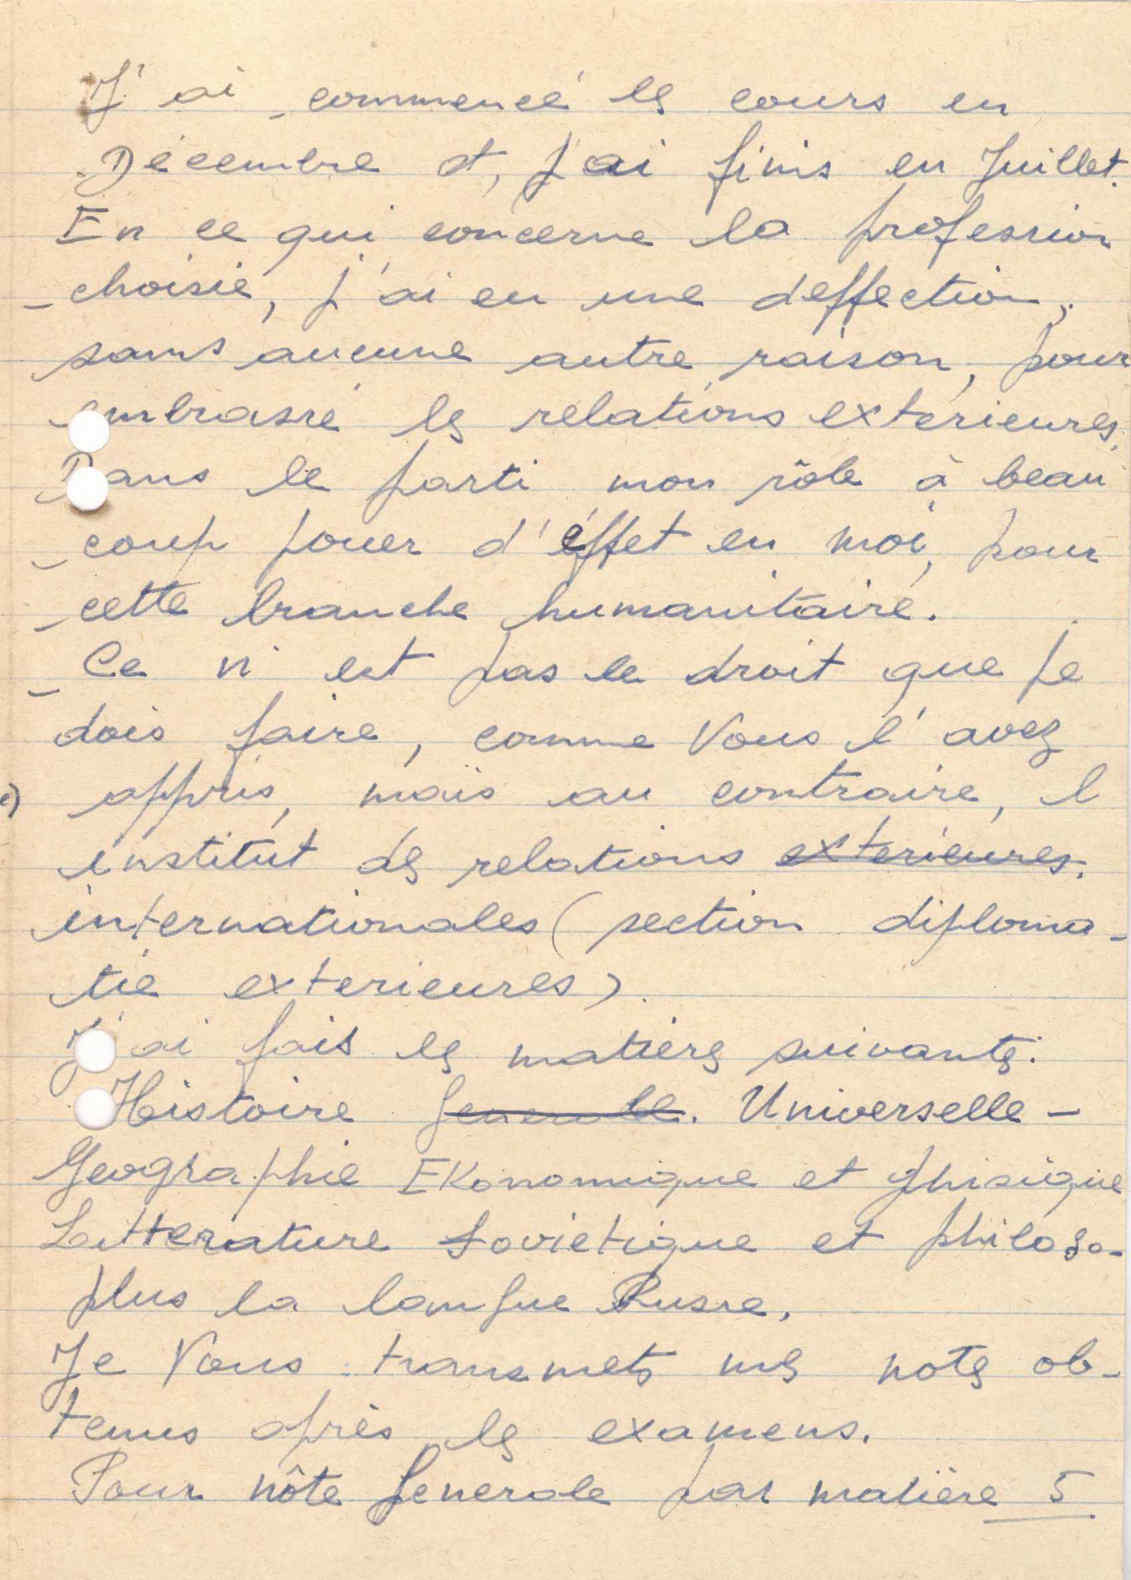 J'ai commencé les cours en
Décembre et, j'ai finis en Juillet.
En ce qui concerne la profession
choisie, j'ai eu une deffection,
sans aucune autre raison, pour
embrassé les relations exterieures.
Dans le parti mon rôle à beau
coup jouer d'éffet en moi, pour
cette branche humanitaire.
Ce n'est pas le droit que je
dois faire, comme Vous l'avez
appris, mais au contraire, l
institut des relations exterieures.
internationales (section diploma-
tie exterieures).
J'ai fais les matières suivantes:
Histoire Generale. Universelle -
Geographie EKonomique et phisique
Litterature Sovietique et philoso-
plus la langue Russe.
Je Vous transmets mes notes ob-
tenus après les examens.
Pour nôte Generale par matière 5